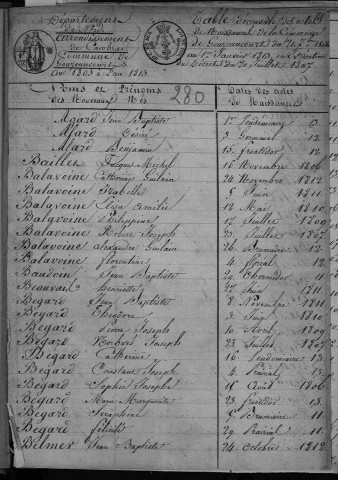 Département
du Nord
Arrondissement
de Cambrai
Commune de
Gouzeaucourt
An 1803 à l'an 1813
Table décennale des actes
de Naissance de la Commune
de Gouzeaucourt du
1er Janvier 1813, aux termes
du Décret du 20 Juillet 1807
Noms et Prénoms
des Nouveaux Nés
280
Dates des actes
de Naissances
Alard Jean Baptiste 1er Vendémiaire 13
Alard Désiré 3 Germinal 12
Alard Benjamin 15 Fructidor 12
Baillet Jacques Michel 16 Novembre 1806
Balavoine Catherine Guilain 24 Novembre 1812
Balavoine Isabelle 5 Juin 1811
Balavoine Elisa Amélie 12 Mai 1810
Balavoine Philippine 17 Juillet 1809
Balavoine Robert Joseph 23 Juillet 1807
Balavoine Alexandre Guilain 26 Brumaire 12
Balavoine Florentine 4 Floréal 12
Baudoin Jean Baptiste 29 Thermidor 11
Beauvais Henriette 27 Juin 1811
Bégard Jean Baptiste 8 Novembre 1811
Bégard Théodore 3 Juin 1810
Bégard Pierre Joseph 10 Avril 1809
Bégard Norbert Joseph 23 Juillet 1807
Bégard Catherine 16 Vendémiaire 13
Bégard Constant Joseph 4 Prairial 13
Bégard Sophie Josephe 11 Août 1806
Bégard Marie Marguerite 23 Fructidor 13
Bégard Séraphine 5 Brumaire 11
Bégard Félicité 29 Prairial 11
Belmer Jean Baptiste 24 Octobre 1812